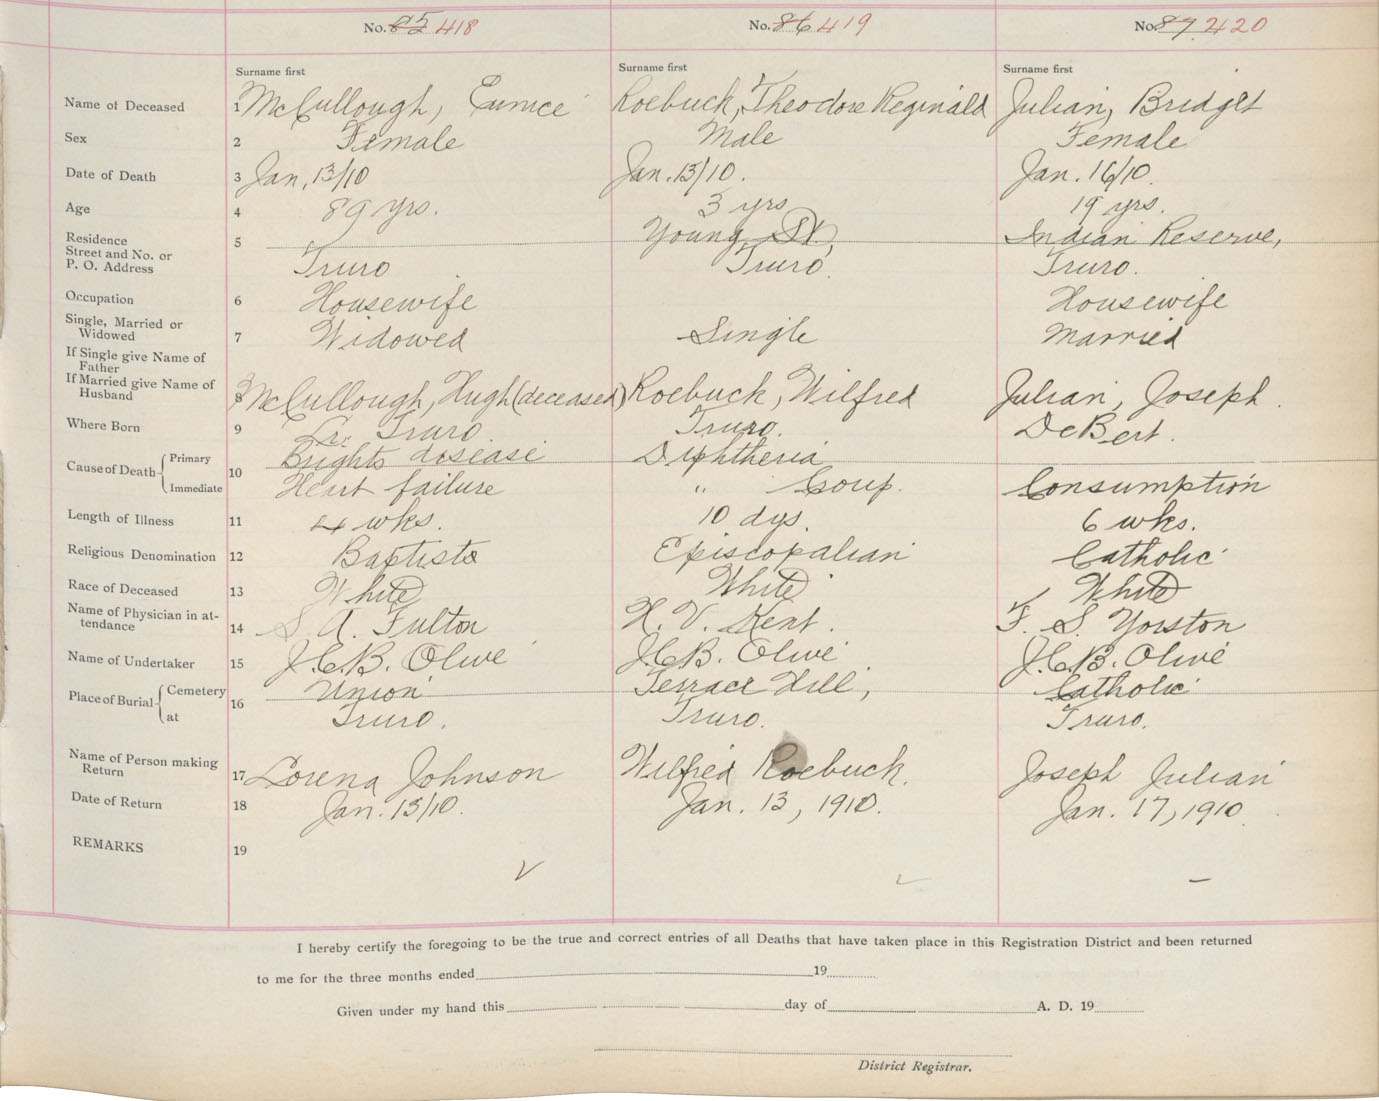 No. 85 418 No. 86 419 No. 87 420
Surname first Surname first Surname first
Name of Deceased 1 McCullough, Eunice Roebuck, Theodore Reginald Julian, Bridget
Sex 2 Female Male Female
Date of Death 3 Jan, 13/10 Jan. 13/10. Jan. 16/10.
Age 4 89 yrs. 3 yrs 19 yrs.
Residence 5 Young St, Indian Reserve,
Street and No. or
P. O. Address Truro Truro. Truro.
Occupation 6 Housewife Housewife
Single, Married or
Widowed 7 Widowed Single Married
If Single give Name of
Father
If Married give Name of
Husband 8 McCullough, Hugh (deceased) Roebuck, Wilfred Julian, Joseph.
Where Born 9 Lr. Truro. Truro. DeBert.
Cause of Death { Primary 10 Brights disease Diphtheria
Immediate Heart failure " Coup. Consumption
Length of Illness 11 4 wks. 10 dys. 6 wks.
Religious Denomination 12 Baptists Episcopalian Catholic
Race of Deceased 13 White White White
Name of Physician in at-
tendance 14 S. A. Fulton H. V. Kent. F. S. Yorston
Name of Undertaker 15 J.C.B. Olive J.C.B. Olive J.C.B. Olive
Place of Burial { Cemetery 16 Union Terrace Hill, Catholic
at Truro. Truro. Truro.
Name of Person making
Return 17 Lorena Johnson Wilfred Roebuck. Joseph Julian
Date of Return 18 Jan. 13/10. Jan. 13, 1910. Jan. 17, 1910.
REMARKS 19
I hereby certify the foregoing to be the true and correct entries of all Deaths that have taken place in this Registration District and been returned
to me for the three months ended 19
Given under my hand this day of A. D. 19
District Registrar.